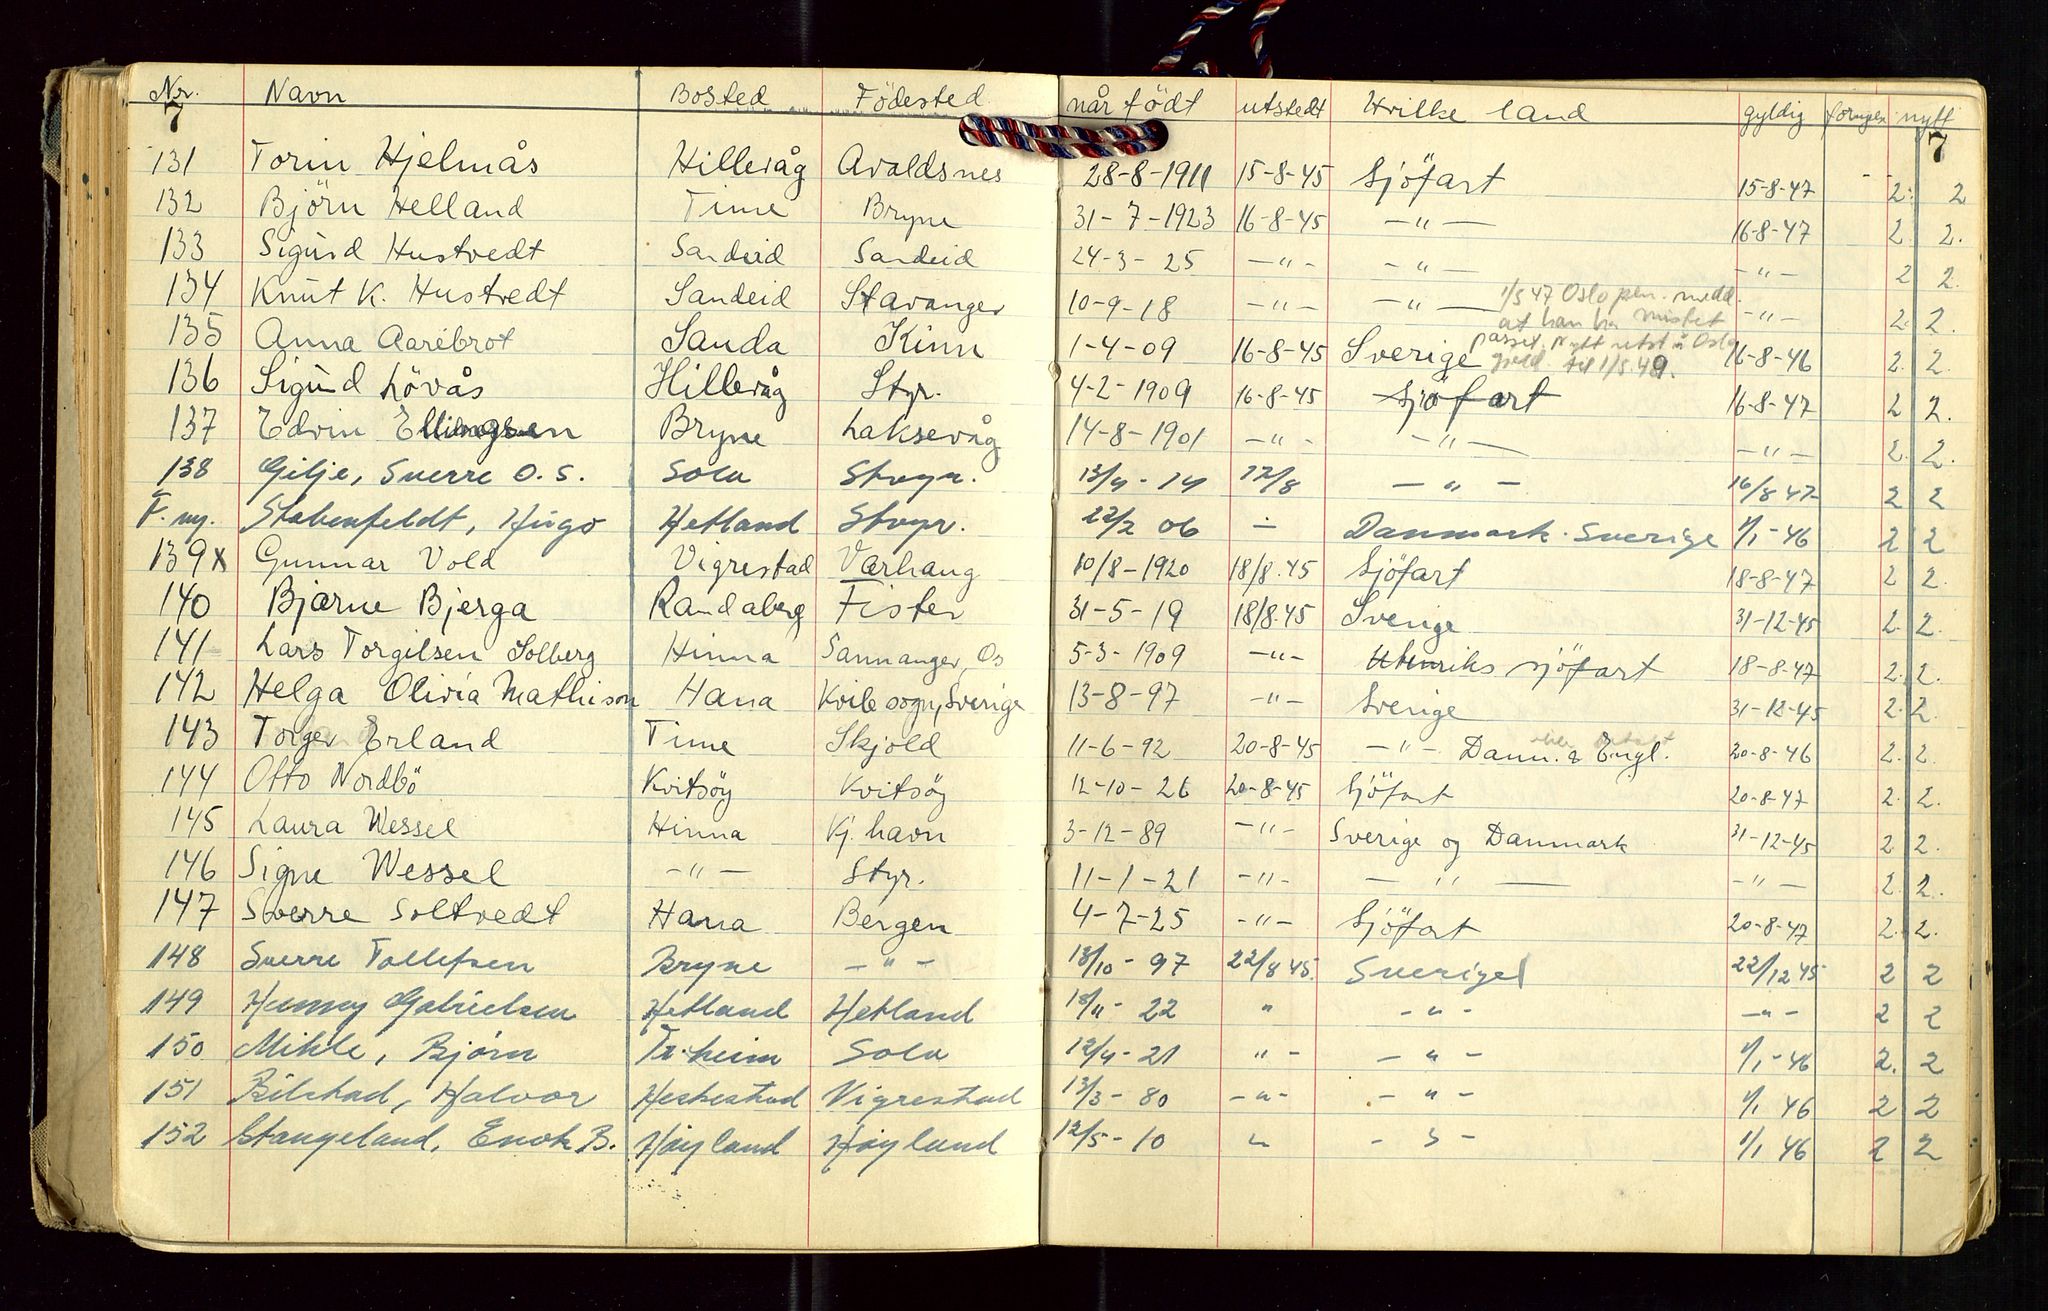 Nr. Navn Bosted Födested når födt utstedt Hvilke land gyldig fornyet nytt
7 7
131 Torin Hjelmås Hillevåg Avaldsnes 28-8-1911 15-8-45 Sjöfart 15-8-47 2. 2
132 Björn Helland Time Bryne 31-7-1923 16-8-45 -"- 16-8-47 2. 2.
133 Sigurd Hustvedt Sandeid Sandeid 24-3-25 -"- -"- -"- 2 2.
134 Knut K. Hustvedt Sandeid Stavanger 10-9-18 -"- -"- -"- 2. 2.
1/5 47 Oslo pkm. medd.
at han har mistet
passet. Nytt utst. i Oslo
gyld. til 1/5.49.
135 Anna Aarebrot Sanda Kinn 1-4-09 16-8-45 Sverige 16-8-46 2. 2.
136 Sigurd Lövås Hillevåg Styr. 4-2-1909 16-8-45 Sjöfart 16-8-47 2 2.
137 Edvin Ellingsen Bryne Laksevåg 14-8-1901 -"- -"- -"- 2. 2.
138 Gilje, Sverre O. S. Sola Stvgr. 13/4-14 22/8 -"- 16/8 47 2 2
F. ny. Stabenfeldt, Hugo Hetland Stvgr. 22/2 06 - Danmark. Sverige 1/1-46 2 2
139x Gunnar Vold Vigrestad Varhaug 10/8-1920 18/8.45 Sjöfart 18-8-47 2 2.
140 Bjarne Bjerga Randaberg Fister 31-5-19 18/8.45 Sverige 31-12-45 2. 2.
141 Lars Torgilsen Solberg Hinna Samnanger, Os 5-3-1909 -"- Utenriks sjöfart 18-8-47 2. 2.
142 Helga Olivia Mathison Hana Kville sogn, Sverige 13-8-97 -"- Sverige 31-12-45 2. 2.
143 Torger Erland Time Skjold 11-6-92 20-8-45 -"- Danm. & Engl. 20-8-46 2. 2.
144 Otto Nordbö Kvitsöy Kvitsöy 12-10-26 20-8-45 Sjöfart 20-8-47 2. 2.
145 Laura Wessel Hinna Kj.havn 3-12-89 -"- Sverige og Danmark 31-12-45 2 2.
146 Signe Wessel -"- Styr. 11-1-21 -"- -"- -"- 2. 2.
147 Sverre Soltvedt Hana Bergen 4-7-25 -"- Sjöfart 20-8-47 2. 2.
148 Sverre Tollefsen Bryne -"- 18/10-97 22/8 45. Sverige 22/12 45 2 2
149 Henny Gabrielsen Hetland Hetland 18/11-22 " -"- -"- 2 2
150 Mihle, Bjørn Tr.heim Sola 12/4-21 "- -"- 1/1-46 2. 2
151 Bilstad, Halvor Heskestad Vigrestad 13/3-80 -"- -"- 1/1 46 2 2
152 Stangeland, Enok B. Høyland Høyland 12/5-10 " -"- 1/1 46 2 2